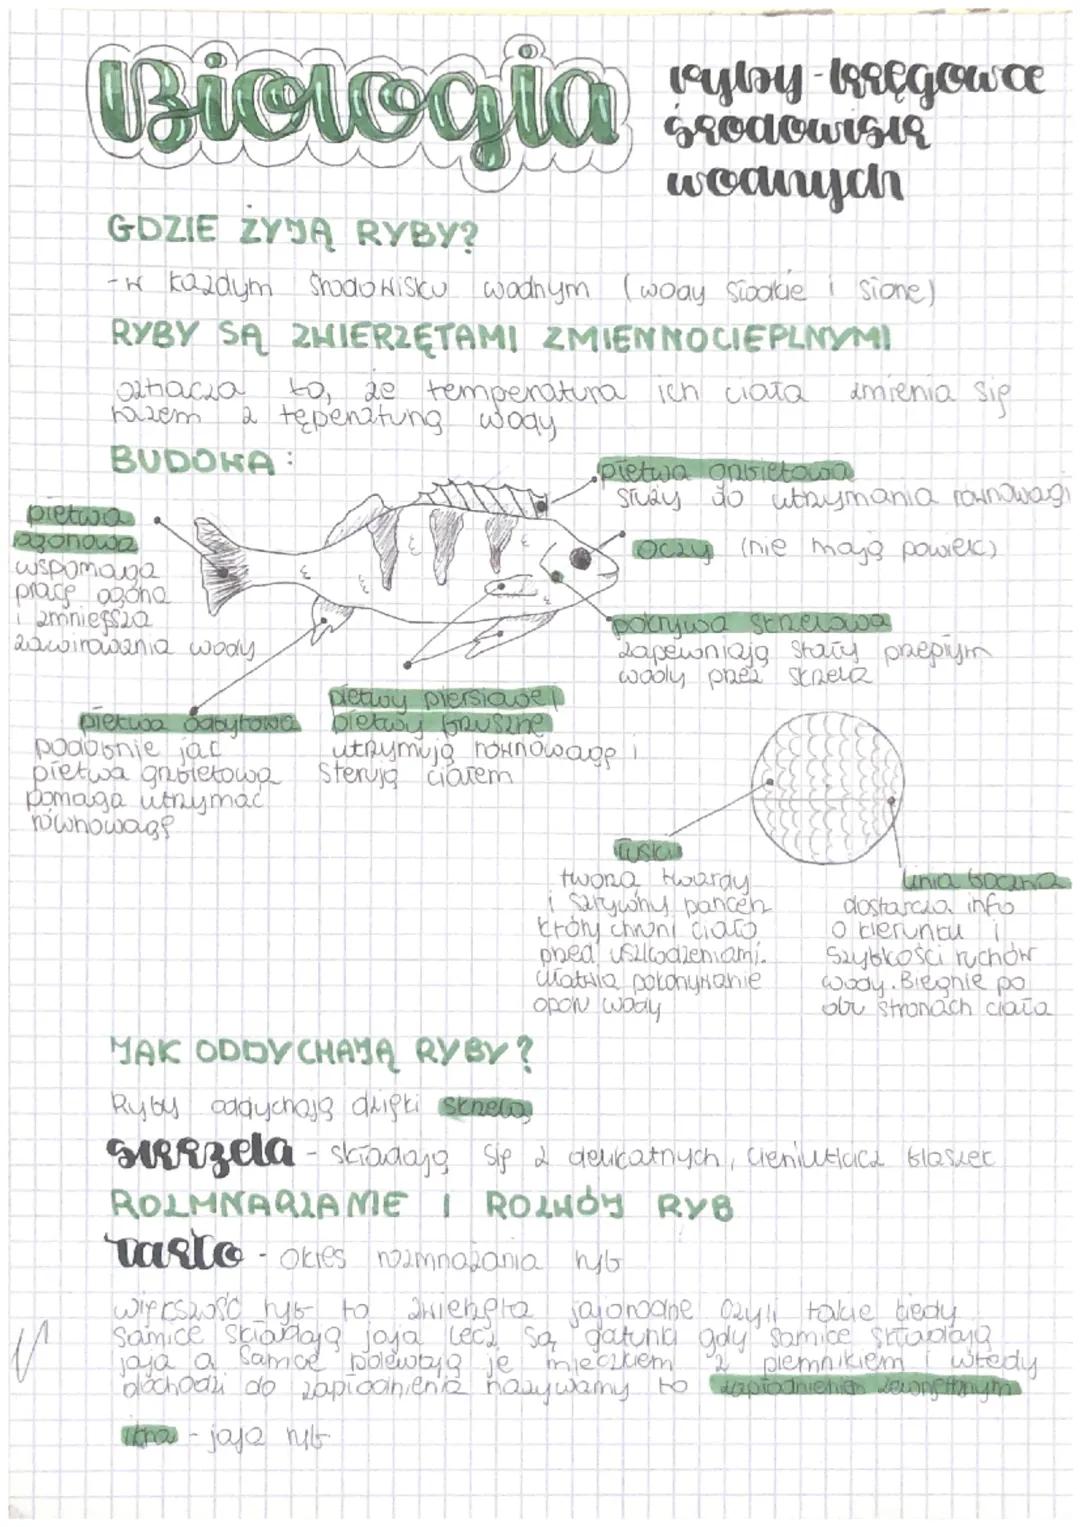 Biologia
ryby - kręgowce
środowisk
wodnych
GDZIE ŻYJĄ RYBY?
- w każdym środowisku wodnym (wody słodkie i słone)
RYBY SĄ ZWIERZĘTAMI ZMIENNOCIEPLNYMI
oznacza to, że temperatura ich ciała zmienia się
razem z tęperaturą wody
BUDOWA:
płetwa grzbietowa
służy do utrzymania równowagi
oczy (nie mają powiek)
pokrywa skrzelowa
zapewniają stały przepływ
wody przez skrzela
płetwa
ogonowa
wspomaga
pracę ogona
i zmniejsza
zawirowania wody
płetwa odbytowa
podobnie jak
płetwa grzbietowa
pomaga utrzymać
równowagę
płetwy piersiowe i
płetwy brzuszne
utrzymują równowagę i
sterują ciałem
łuski
tworzą twardy
i sztywny pancerz
który chroni ciało
przed uszkodzeniami.
ułatwia pokonywanie
oporu wody
linia boczna
dostarcza info
o kierunku i
szybkości ruchów
wody. Biegnie po
obu stronach ciała
JAK ODDYCHAJĄ RYBY?
Ryby oddychają dzięki skrzelą
skrzela - składają się z delikatnych, cieniutkich blaszek
ROZMNARZANIE I ROZWÓJ RYB
tarło - okres rozmnażania ryb
większość ryb to zwierzęta jajorodne czyli takie kiedy
samice składają jaja lecz są gatunki gdy samice składają
jaja a samce polewają je mleczkiem z plemnikiem i wtedy
dochodzi do zapłodnienia nazywamy to zapłodnieniem zewnętrznym
ikra - jaja ryb